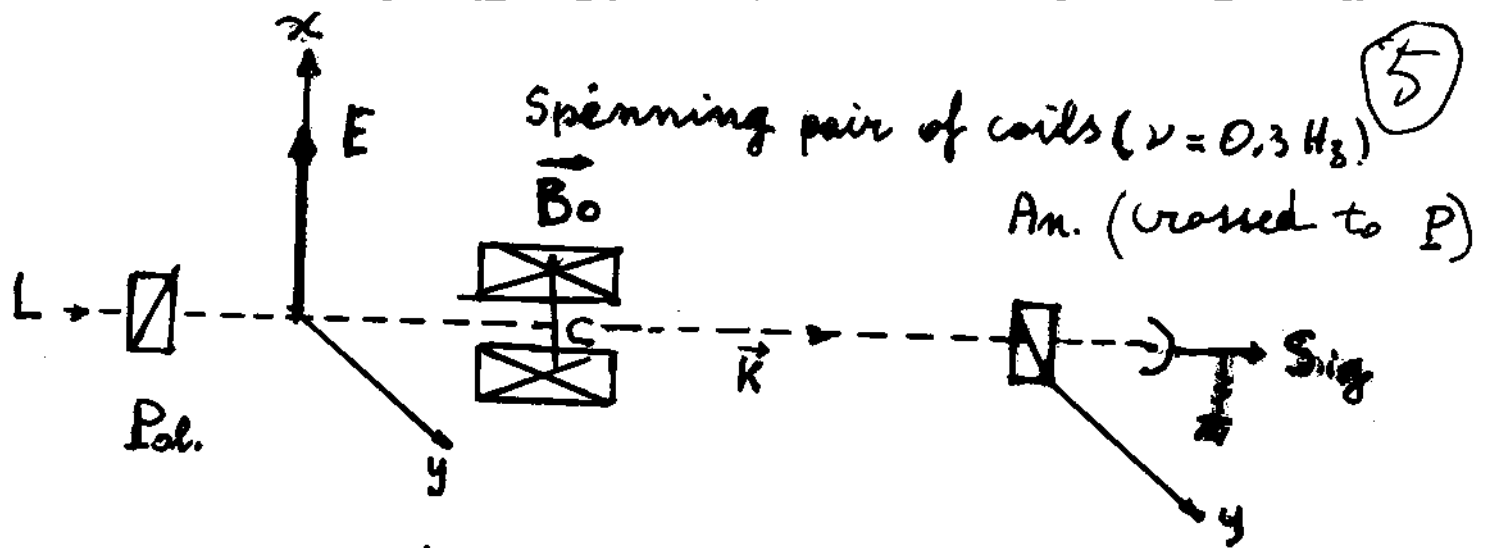 5
x
E
Spinning pair of coils (ν = 0.3 Hz)
B₀
An. (crossed to P)
L
C
K
Sig
Pol.
y
y